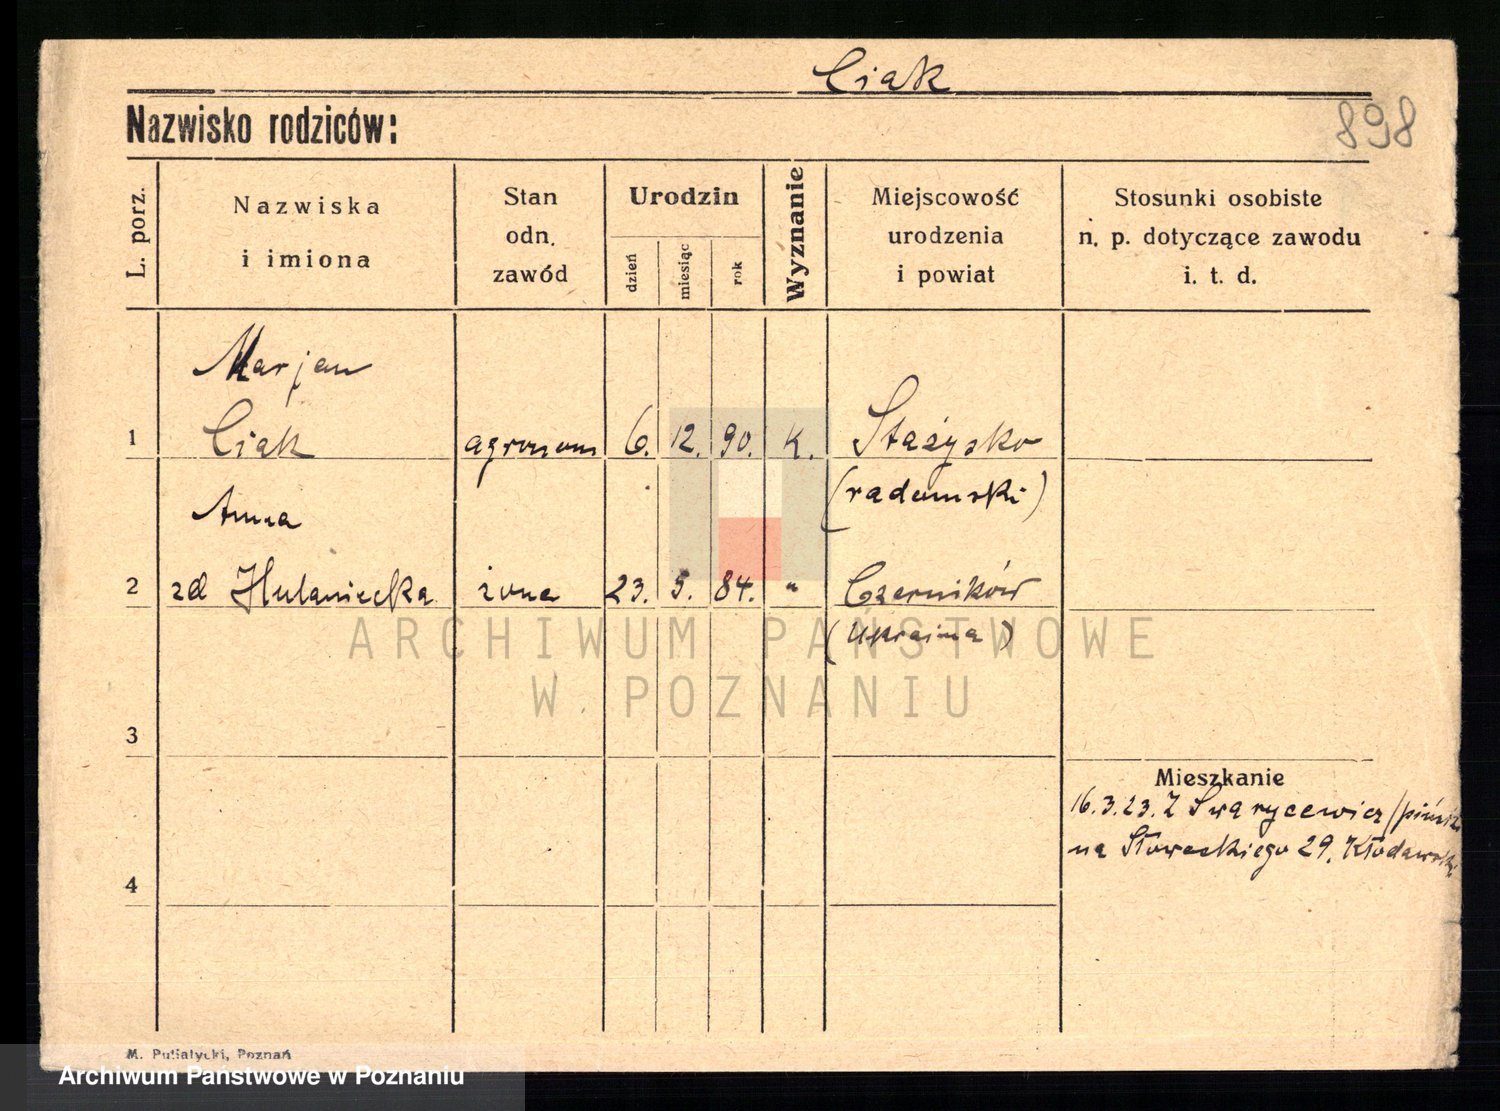 Ciak
898
Nazwisko rodziców:
L. porz.
Nazwiska
i imiona
Stan
odn.
zawód
Urodzin
dzień
miesiąc
rok
Wyznanie
Miejscowość
urodzenia
i powiat
Stosunki osobiste
n. p. dotyczące zawodu
i. t. d.
Marjan
1 Ciak agronom 6. 12. 90. K. Stażysko
(radomski)
Anna
2 zd Hulaniecka żona 23. 5. 84. " Czerników
(Ukraina)
ARCHIWUM PAŃSTWOWE
W POZNANIU
3
Mieszkanie
16.3.23. Z Swarycewicz/pińsk
na Słowackiego 29. Kłodawski
4
M. Putiatycki, Poznań
Archiwum Państwowe w Poznaniu